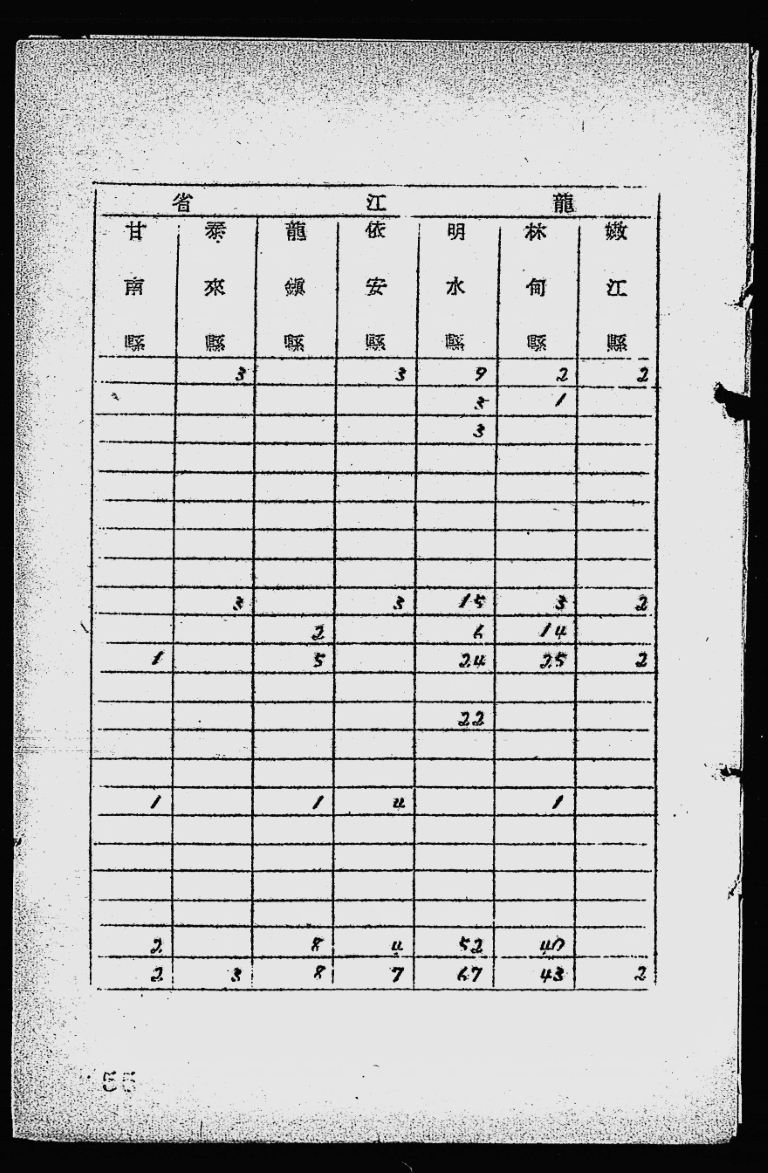 省 江 龍
甘南縣 泰來縣 龍鎭縣 依安縣 明水縣 林甸縣 嫩江縣
3 3 9 2 2
3 1
3
3 3 15 3 2
2 6 14
1 5 24 25 2
22
1 1 4 1
2 8 4 52 40
2 3 8 7 67 43 2
55